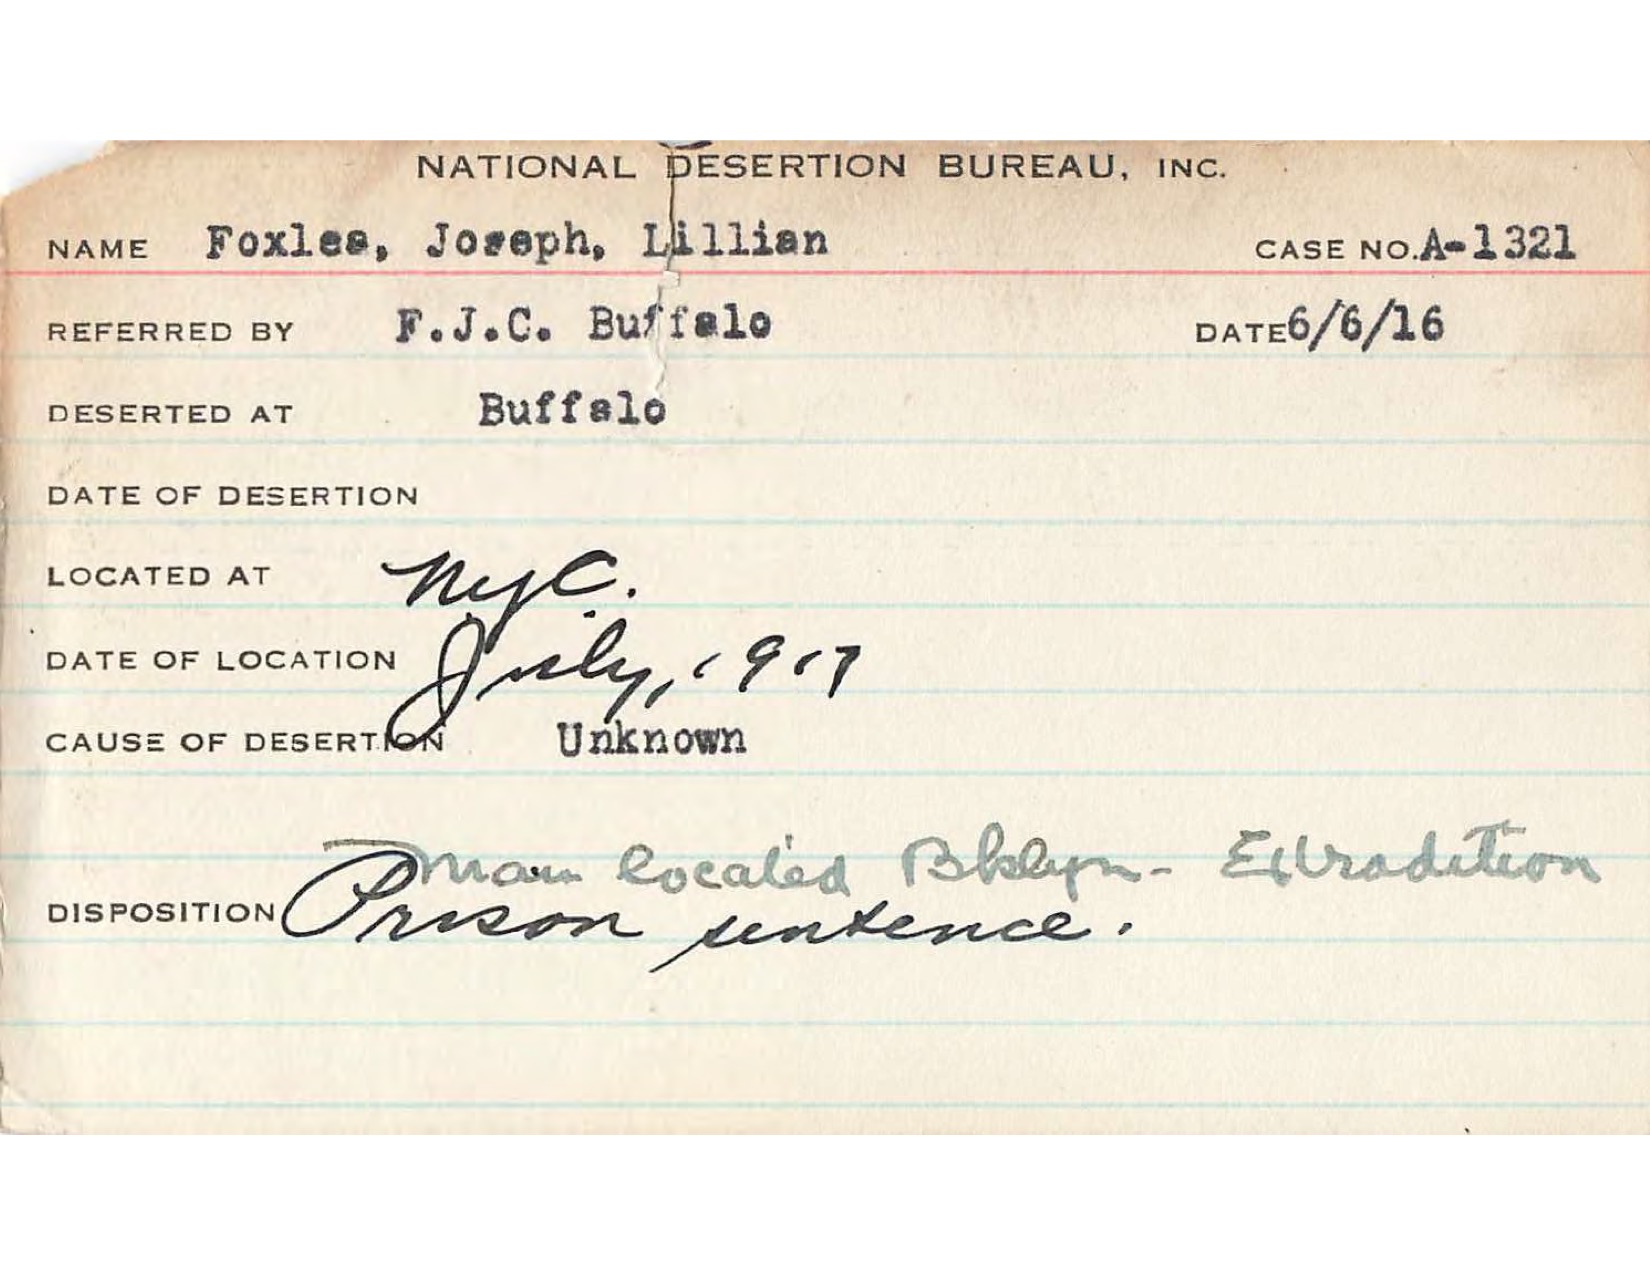 NATIONAL DESERTION BUREAU, INC.
NAME Foxlee, Joseph, Lillian CASE NO. A-1321
REFERRED BY F.J.C. Buffalo DATE 6/6/16
DESERTED AT Buffalo
DATE OF DESERTION
LOCATED AT NyC.
DATE OF LOCATION July, 1917
CAUSE OF DESERTION Unknown
Man located Bklyn - Extradition
DISPOSITION Prison sentence.